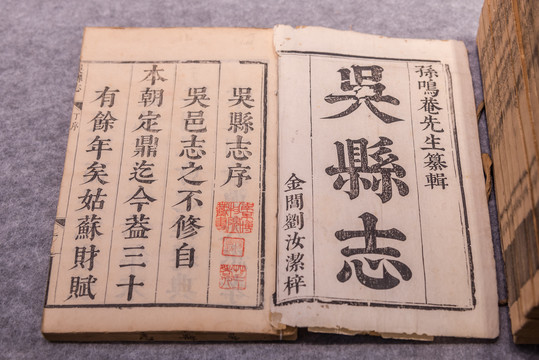 孫鳴菴先生纂輯
吳縣志
金閶劉汝潔梓
吳縣志序
吳邑志之不修自
本朝定鼎迄今葢三十
有餘年矣姑蘇財賦